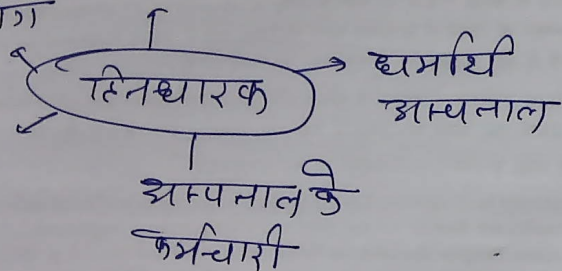 हितधारक
धर्मार्थ
अस्पताल
अस्पताल के
कर्मचारी